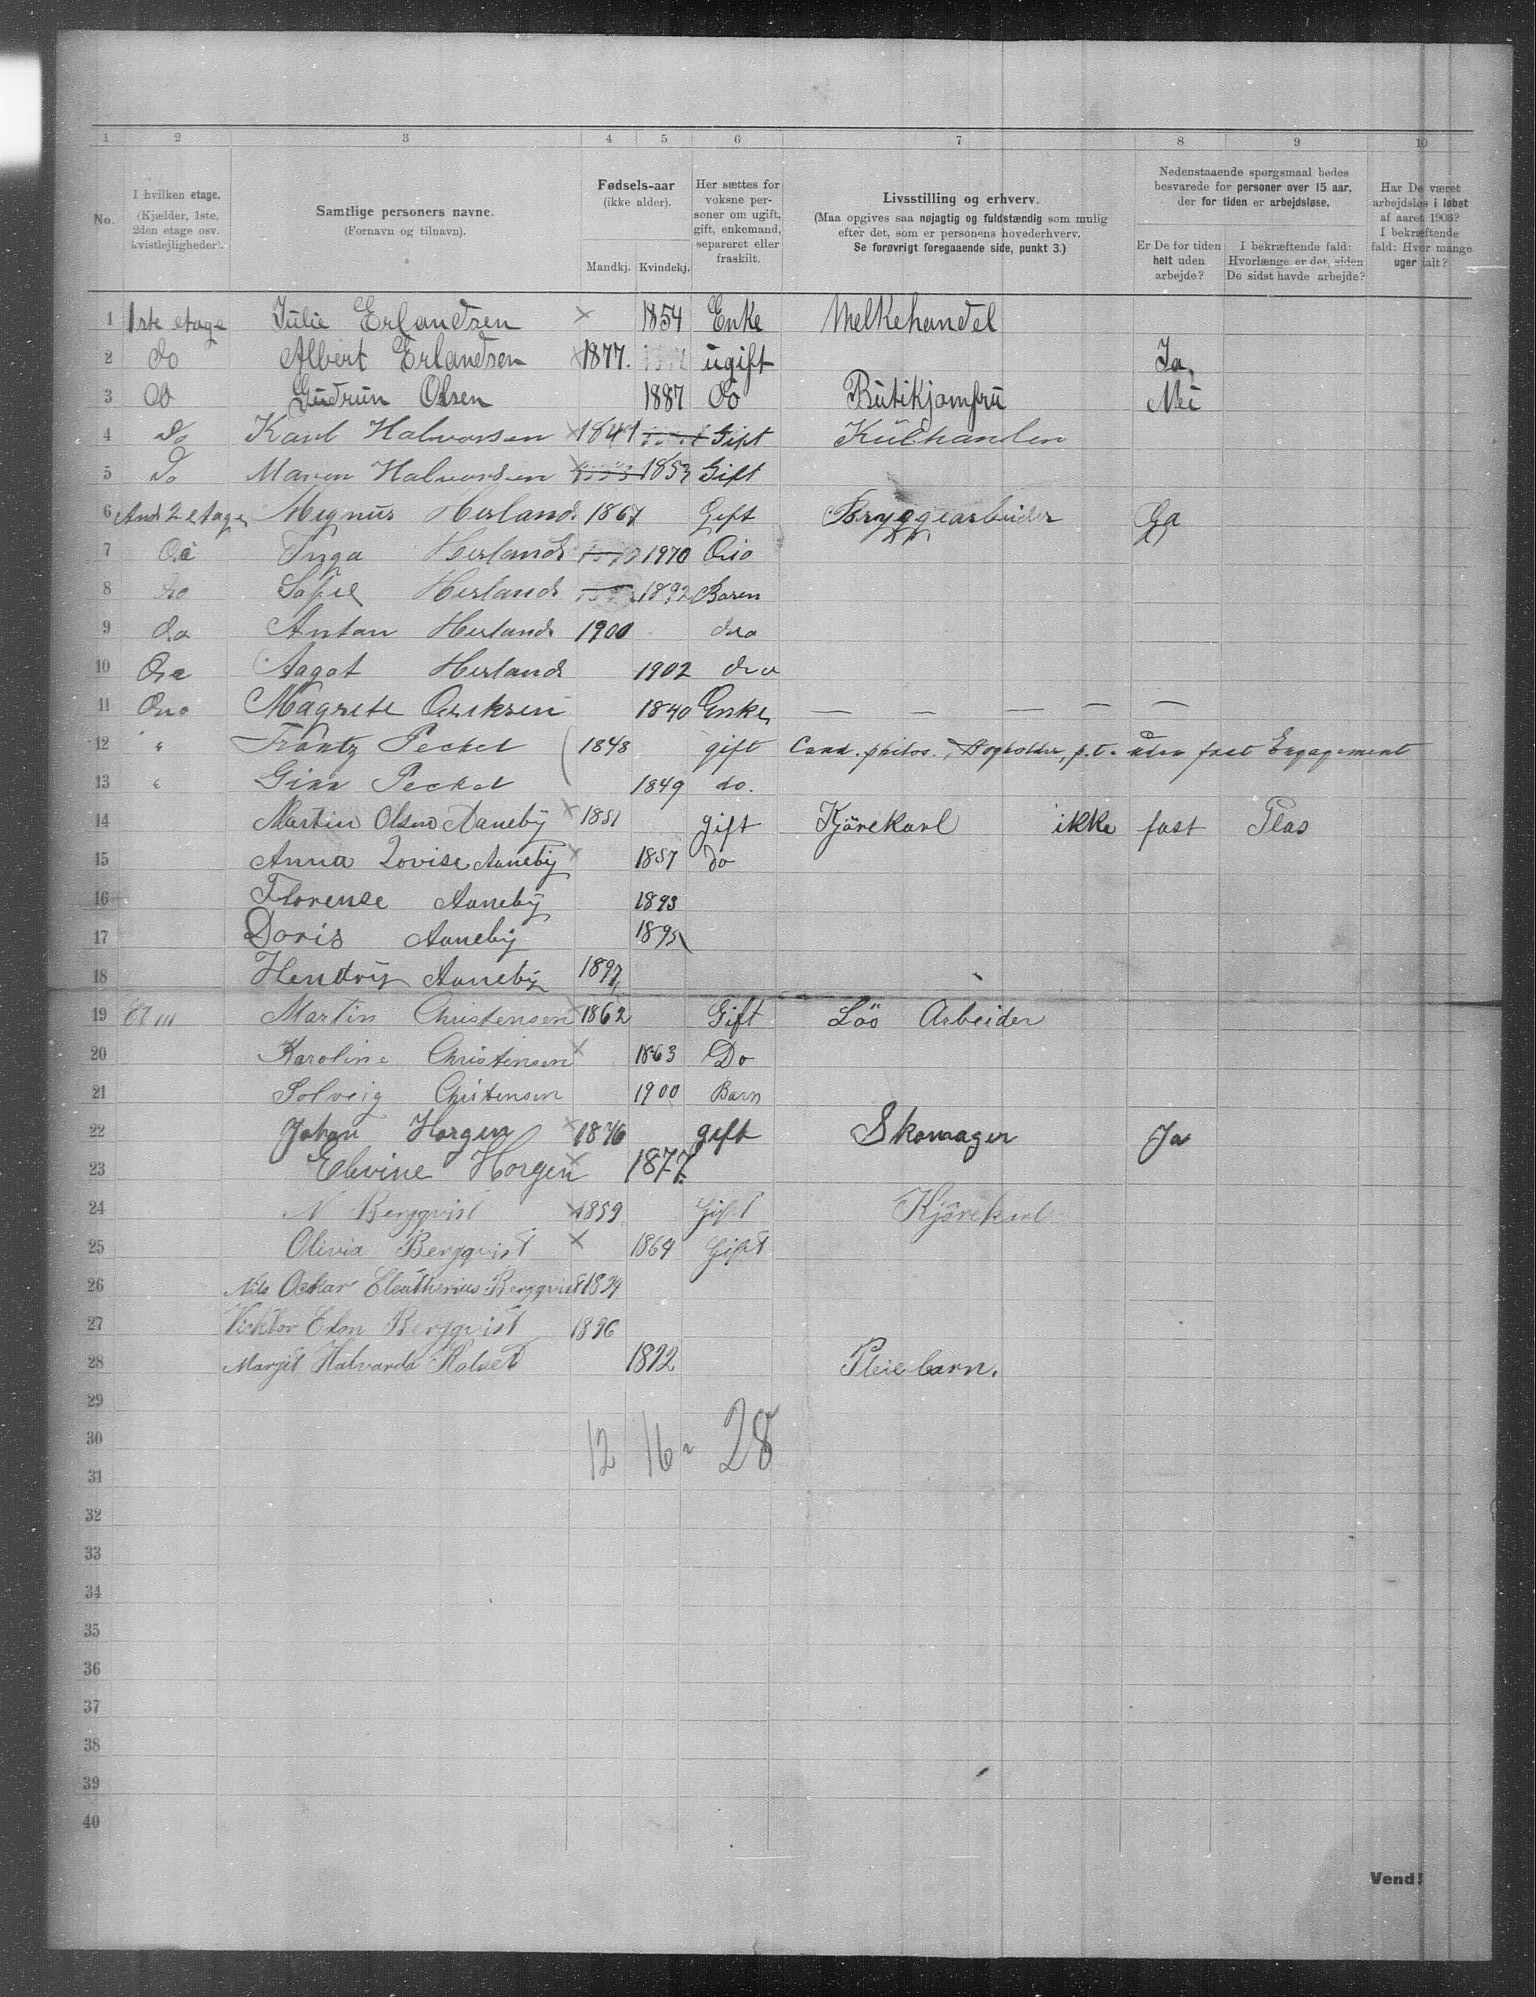 1 2 3 4 5 6 7 8 9 10
No.
I hvilken etage. (Kjælder, 1ste, 2den etage osv. kvistlejligheder).
Samtlige personers navne.
(Fornavn og tilnavn).
Fødsels-aar
(ikke alder).
Mandkj. Kvindekj.
Her sættes for voksne personer om ugift, gift, enkemand, separeret eller fraskilt.
Livsstilling og erhverv.
(Maa opgives saa nøjagtig og fuldstændig som mulig efter det, som er personens hovederhverv.
Se forøvrigt foregaaende side, punkt 3.)
Nedenstaaende spørgsmaal bedes besvarede for personer over 15 aar, der for tiden er arbejdsløse.
Er De for tiden helt uden arbejde?
I bekræftende fald: Hvorlænge er det, siden De sidst havde arbejde?
Har De været arbejdsløs i løbet af aaret 1903? I bekræftende fald: Hvor mange uger ialt?
1 1ste etage Julie Erlandsen × 1854 Enke Melkehandel
2 do Albert Erlandsen × 1877. ugift Ja.
3 do Gudrun Olsen 1887 do Butikjomfru Nei
4 Do Karl Halvorsen × 1841 Gift Kulhandler
5 Do Maren Halvorsen × 1853 Gift
6 2 etage Magnus Herland. 1867 Gift Bryggearbeider Ja
7 Inga Herland 1970 Dio
8 do Sofie Herland 1892 Baren
9 do Antan Herland 1900 dro
10 Aagot Herland 1902
11 Magrete Eriksen 1840 Enke, — — — — —
12 " Frantz Peckel 1848 gift Cand. philos., Bogholder, p.t. uden fast Engagement
13 " Gina Peckel 1849 do.
14 Martin Olsen Aaneby × 1851 gift Kjörekarl ikke fast Plas
15 Anna Lovise Aaneby × 1857 do
16 Florense Aaneby 1893
17 Doris Aaneby 1895
18 Hendry Aaneby 1897
19 Et III Martin Christensen × 1862 Gift Lös Arbeider
20 Karoline Christensen × 1863 Do
21 Solveig Christensen 1900 Barn
22 Johan Horgen × 1876 gift Skomager Ja
23 Elevine Horgen × 1877.
24 N Bergqvist × 1859 Gift Kjörekarl
25 Olivia Bergqvist × 1864 Gift
26 Nils Oskar Eleutherius Bergqvist 1894
27 Vicktor Edon Bergqvist 1896
28 Margit Halvarda 1892 Pleiebarn.
29
30 12 16 28
31
32
33
34
35
36
37
38
39
40
Vend!